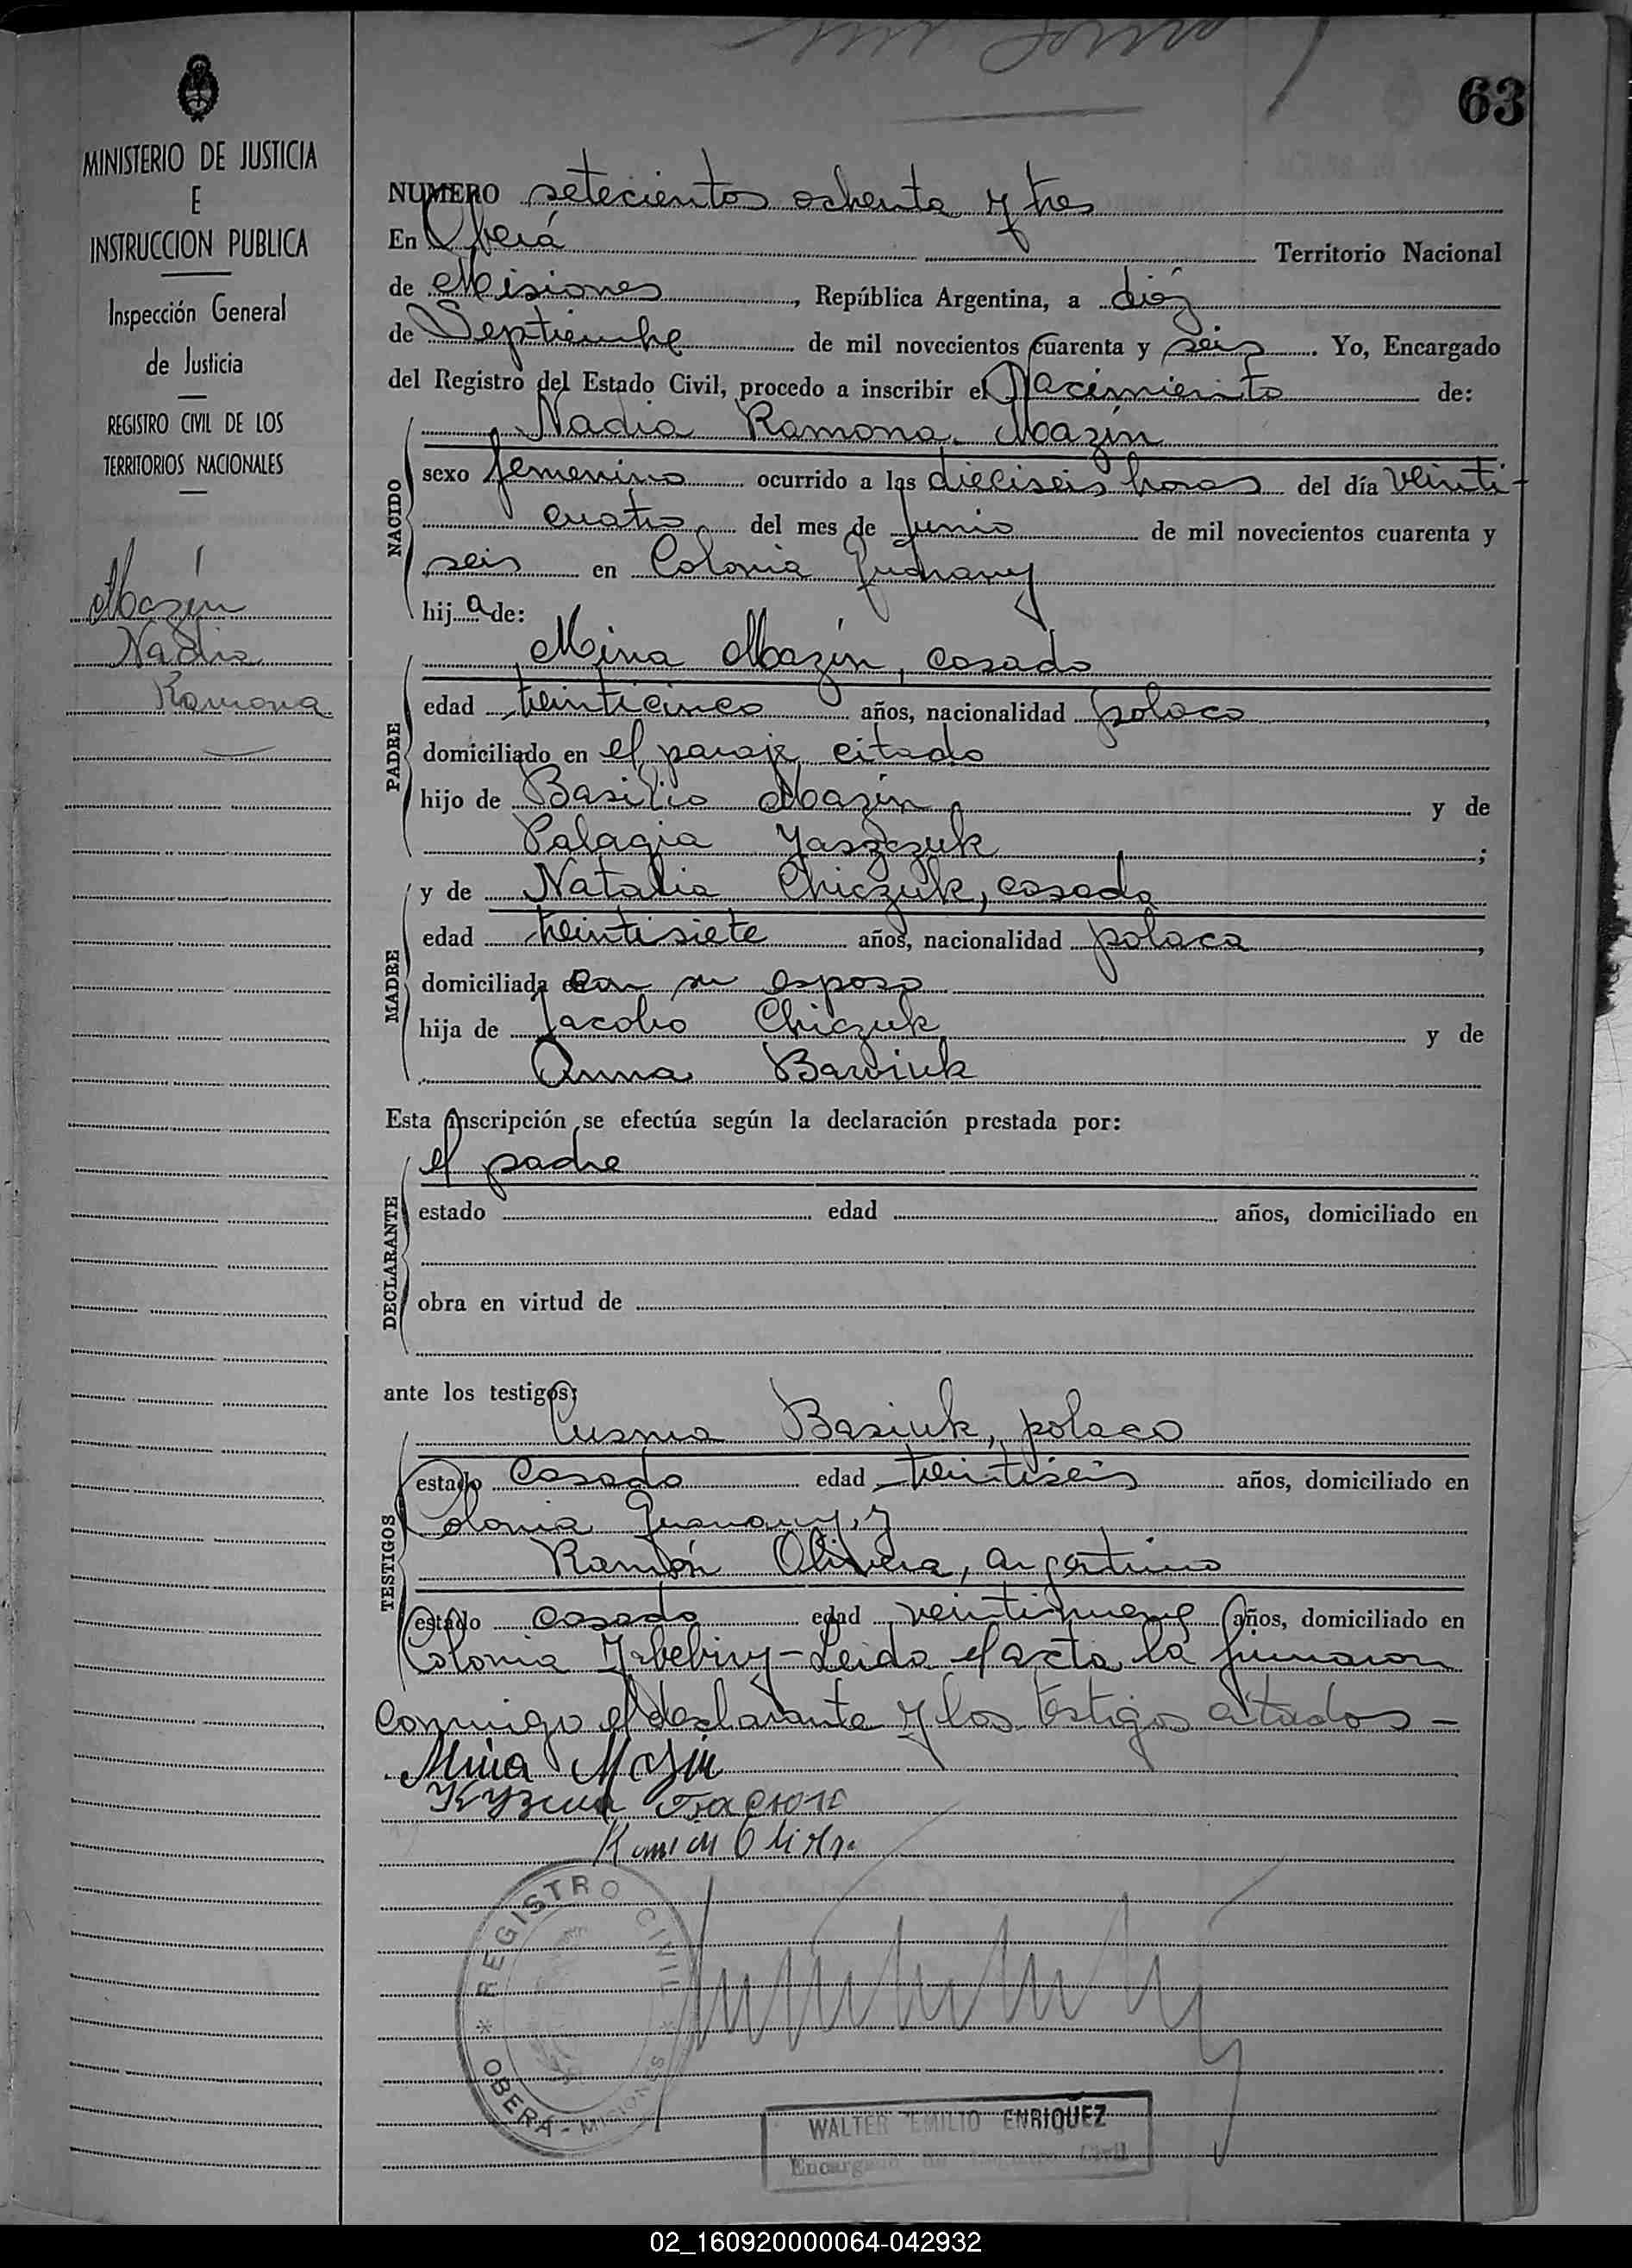 63
MINISTERIO DE JUSTICIA
E
INSTRUCCION PUBLICA
Inspección General
de Justicia
REGISTRO CIVIL DE LOS
TERRITORIOS NACIONALES
Mazin
Nadia
Ramona
NUMERO setecientos ochenta y tres
En Oberá Territorio Nacional
de Misiones, República Argentina, a diéz
de Septiembre de mil novecientos cuarenta y seis. Yo, Encargado
del Registro del Estado Civil, procedo a inscribir el Nacimiento de:
Nadia Ramona Mazin
NACIDO
sexo femenino ocurrido a las dieciseis horas del día veinti-
cuatro del mes de Junio de mil novecientos cuarenta y
seis en Colonia Guarany
hij a de:
PADRE
Mina Mazin, casado
edad veinticinco años, nacionalidad polaco,
domiciliado en el paraje citado
hijo de Basilio Mazin y de
Palagia Jaszczuk;
MADRE
y de Natalia Chiczuk, casada
edad veintisiete años, nacionalidad polaca,
domiciliada con su esposo
hija de Jacobo Chiczuk y de
Anna Bawiuk
Esta inscripción se efectúa según la declaración prestada por:
el padre
DECLARANTE
estado edad años, domiciliado en
obra en virtud de
ante los testigos:
TESTIGOS
Cusma Basiuk, polaco
estado casado edad veintiseis años, domiciliado en
Colonia Guarany, y
Ramón Olivera, argentino
estado casado edad veintinueve años, domiciliado en
Colonia Yabebiry - Leida el acta la firmaron
conmigo el declarante y los testigos citados -
Mina Mazin
Ramon Olivera
REGISTRO CIVIL
OBERA - MISIONES
WALTER EMILIO ENRIQUEZ
Encargado del Registro Civil
02_160920000064-042932